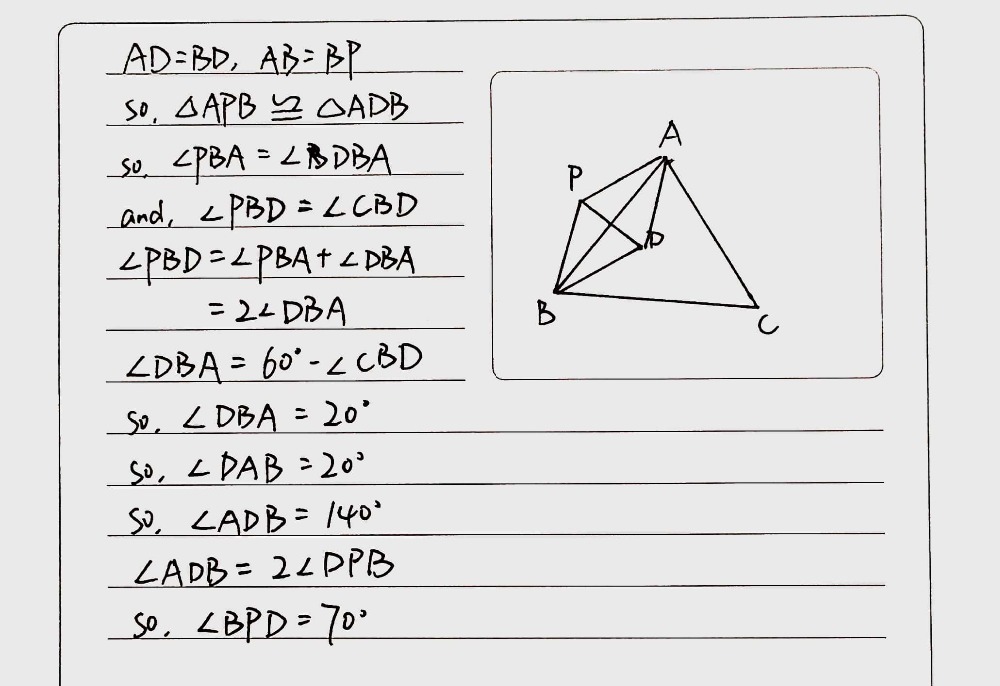 AD=BD, AB=BP
so, △APB ≌ △ADB
so, ∠PBA = ∠DBA
and, ∠PBD = ∠CBD
∠PBD = ∠PBA + ∠DBA
= 2∠DBA
∠DBA = 60° - ∠CBD
so, ∠DBA = 20°
so, ∠DAB = 20°
so, ∠ADB = 140°
∠ADB = 2∠DPB
so, ∠BPD = 70°
A
P
D
B
C